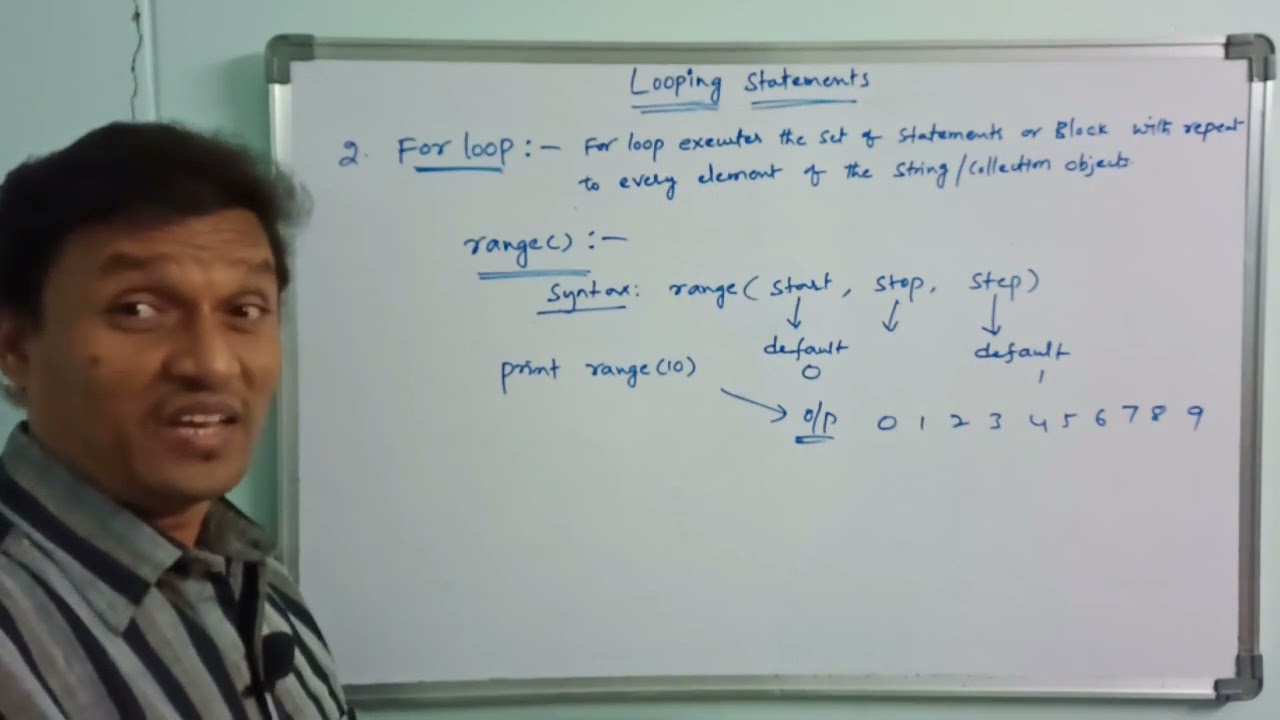 Looping Statements
2. For loop :- For loop executes the set of statements or Block with repeat
to every element of the String/Collection objects
range() :-
Syntax: range( start, stop, step)
default default
print range(10) 0 1
O/P 0 1 2 3 4 5 6 7 8 9